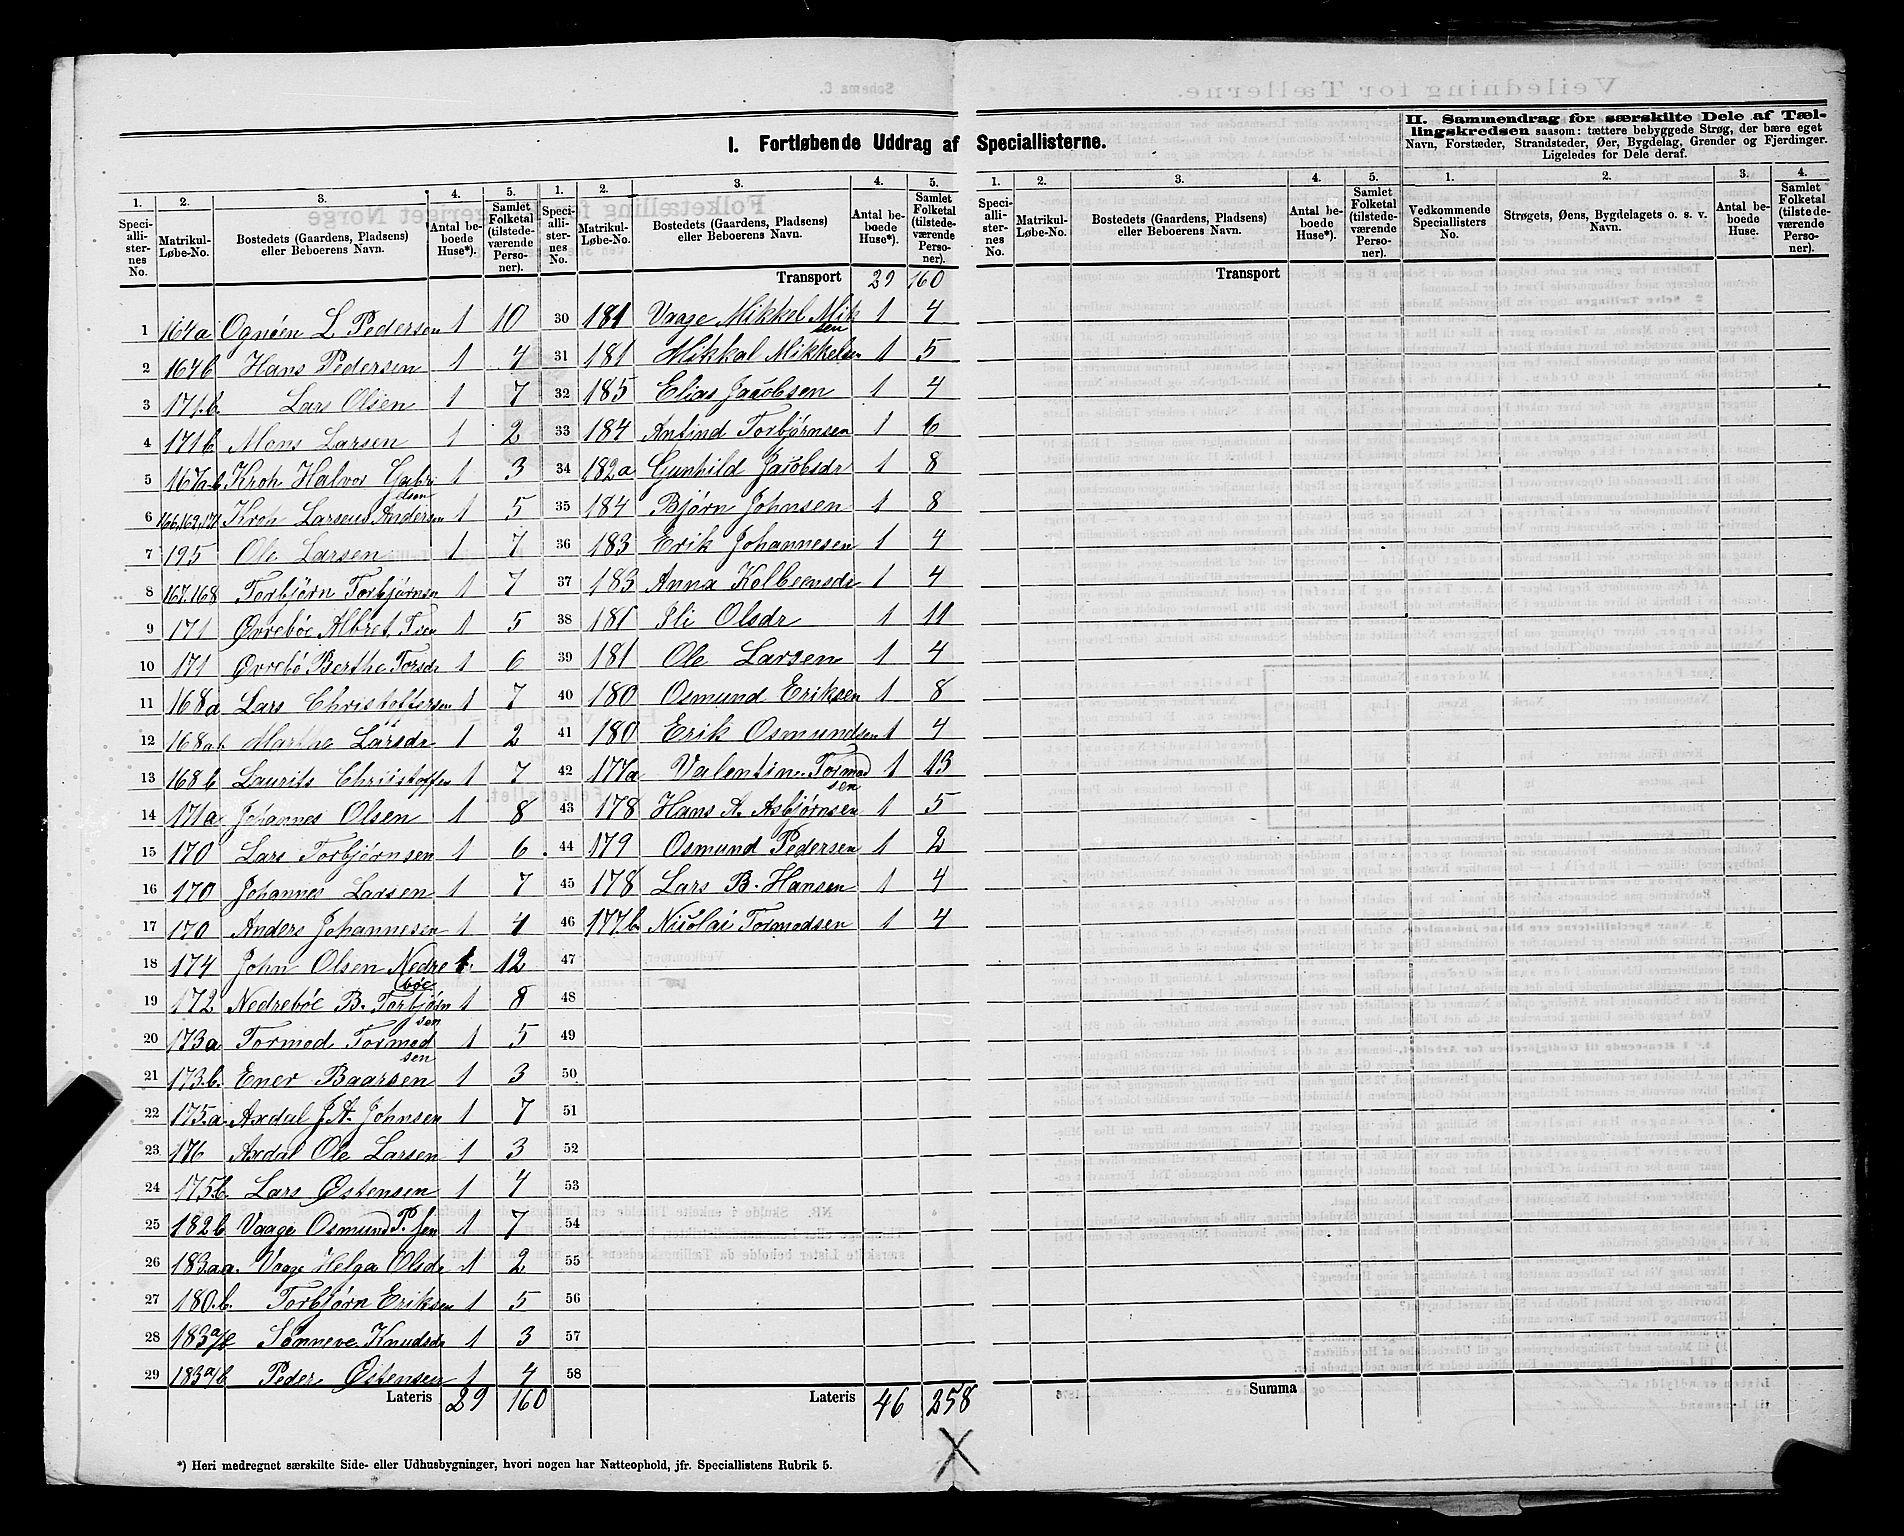 I. Fortløbende Uddrag af Speciallisterne.
II. Sammendrag for særskilte Dele af Tæl-
lingskredsen saasom: tættere bebyggede Strøg, der bære eget
Navn, Forstæder, Strandsteder, Øer, Bygdelag, Grender og Fjerdinger.
Ligeledes for Dele deraf.
1. 2. 3. 4. 5. 1. 2. 3. 4. 5. 1. 2. 3. 4. 5. 1. 2. 3. 4.
Speci-alli-ster-nes No. Matrikul-Løbe-No. Bostedets (Gaardens, Pladsens) eller Beboerens Navn. Antal be-boede Huse*). Samlet Folketal (tilstede-værende Perso-ner).
Speci-alli-ster-nes No. Matrikul-Løbe-No. Bostedets (Gaardens, Pladsens) eller Beboerens Navn. Antal be-boede Huse*). Samlet Folketal (tilstede-værende Perso-ner).
Speci-alli-ster-nes No. Matrikul-Løbe-No. Bostedets (Gaardens, Pladsens) eller Beboerens Navn. Antal be-boede Huse*). Samlet Folketal (tilstede-værende Perso-ner).
Vedkommende Speciallisters No. Strøgets, Øens, Bygdelagets o. s. v. Navn. Antal be-boede Huse. Samlet Folketal (tilstede-værende Perso-ner).
1 164a Ognøen L Pedersen 1 10
2 164b Hans Pedersen 1 4
3 171.b. Lars Olsen 1 7
4 171b Mons Larsen 1 2
5 167a.b Kroh Halvor Gabrielsen 1 3
6 166,169,171 Kroh Larseus Andersen 1 5
7 195 Ole Larsen 1 7
8 167.168 Torbjørn Torbjørnsen 1 7
9 171 Øvrebøe Albret Tsen 1 5
10 171 Øvrebø Berthe Torsdr 1 6
11 168a Lars Christoffersen 1 7
12 168ab Marthe Larsdr 1 2
13 168b Laurits Christoffen 1 7
14 171a Johannes Olsen 1 8
15 170 Lars Torbjørnsen 1 6
16 170 Johannes Larsen 1 7
17 170 Anders Johannesen 1 4
18 174 John Olsen Nedrebøe 1. 12
19 172 Nedrebøe B. Torbjørnsen 1 8
20 173a Tormod Tormodsen 1 5
21 173.b. Ener Baarsen 1 3
22 175.a. Axdal J. A. Johnsen 1 7
23 176 Axdal Ole Larsen 1 3
24 175.b. Lars Østensen 1 4
25 182b Vaage Osmund P. sen 1 7
26 183aa. Vaage Helga Olsdr 1 2
27 180.b. Torbjørn Eriksen 1 5
28 183 Sønneve Knudsdr 1 3
29 183a/b Peder Østensen 1 4
Lateris 29 160
Transport 29 160
30 181 Vaage Mikkel Miksen 1 4
31 181 Mikkal Mikkelsen 1 5
32 185 Elias Jacobsen 1 4
33 184 Antind Torbjørnsen 1 6
34 182a Gunhild Jacobsdr 1 8
35 184 Bjørn Johnsen 1 8
36 183 Erik Johannesen 1 4
37 183 Anna Kolbeensdr 1 4
38 181 Sli Olsdr 1 11
39 181 Ole Larsen 1 4
40 180 Osmund Eriksen 1 8
41 180 Erik Osmundsen 1 4
42 177a Valentin Tormodsen 1 13
43 178 Hans A. Asbjørnsen 1 5
44 179 Osmund Pedersen 1 2
45 178 Lars B. Hansen 1 4
46 177.b. Nicolai Tormodsen 1 4
47
48
49
50
51
52
53
54
55
56
57
58
Lateris 46 258
Transport
Summa
*) Heri medregnet særskilte Side- eller Udhusbygninger, hvori nogen har Natteophold, jfr. Speciallistens Rubrik 5.